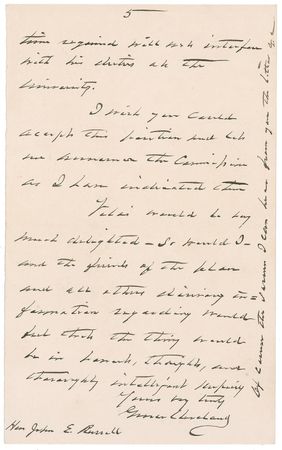 5
time required will not interfere
with his duties at the
University.
I wish you could
accept this position and let
me announce the Commission
as I have indicated above
would be very
much delighted – So would I –
and the friends of the plan
and all others desiring in=
formation regarding would
feel that the thing would
be in honest, thoughtful, and
thoroughly intelligent keeping
Yours very truly
Grover Cleveland
Hon John E. Russell
Of course the sooner I can hear from you the better G.C.